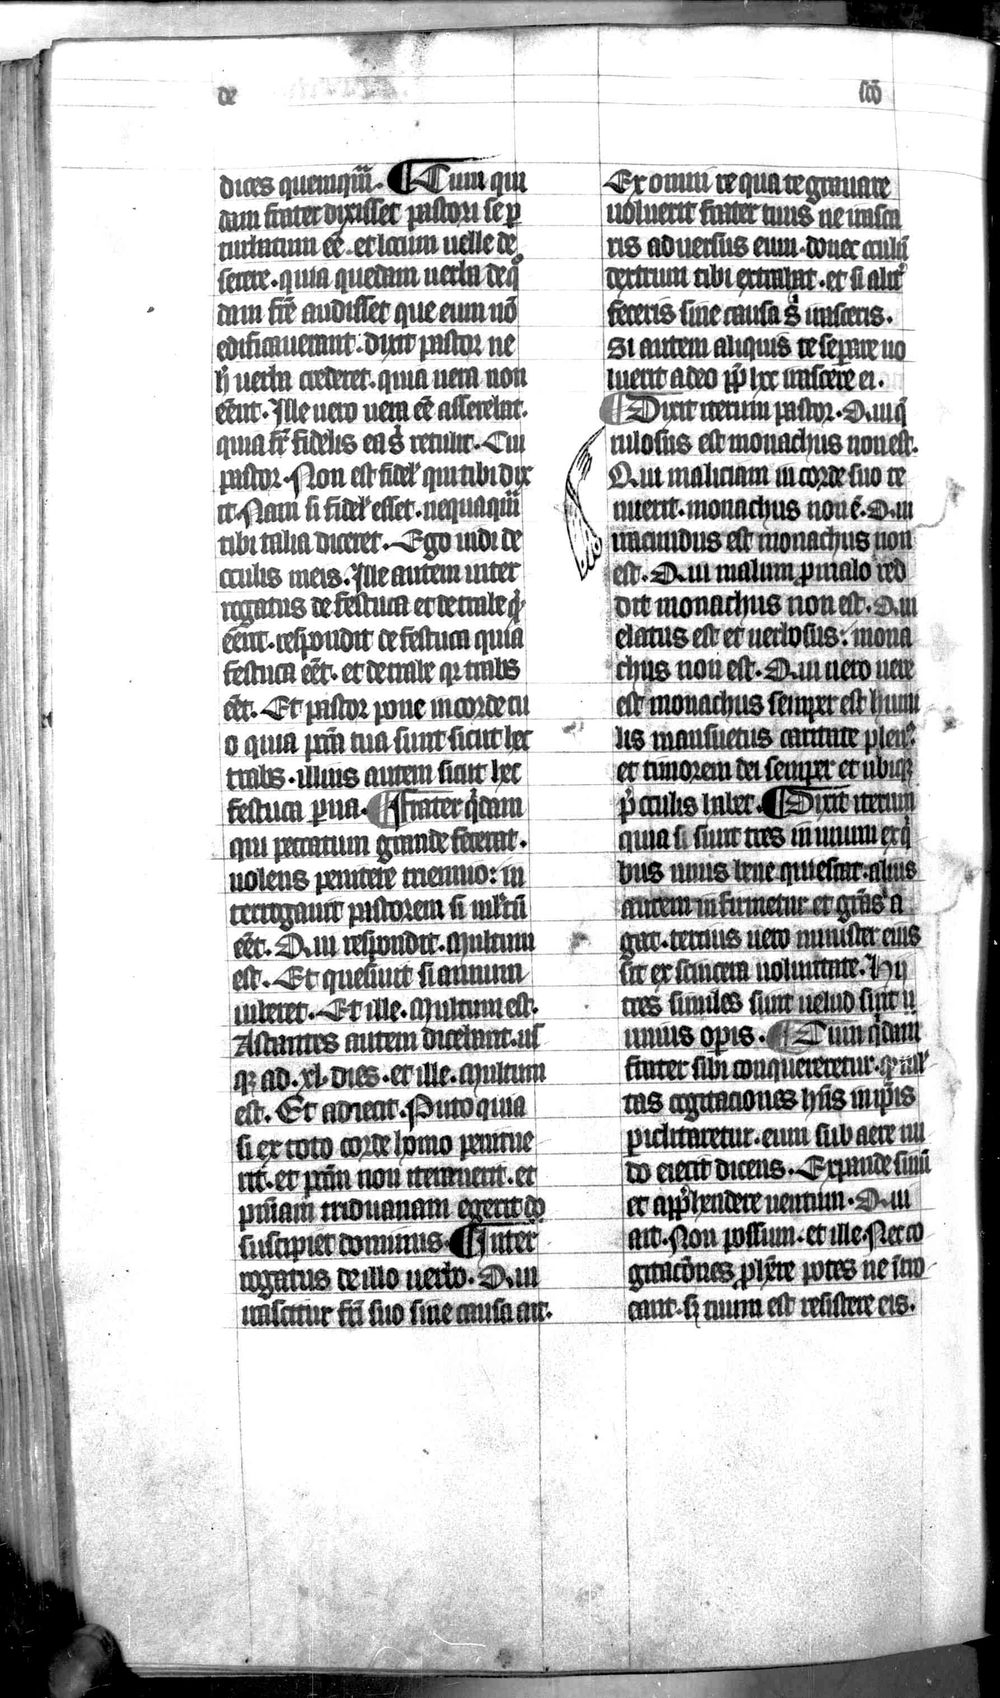 de
sctō
dices quemqm̄. ¶ Cum qui
dam frater dixisset pastori se p
turbatum eē. et locum uelle de
serere. quia quedam uerba de qͦ
dam frē audisset que eum nō
edificauerant. dixit pastor ne
hͥ uerba crederet. quia uera non
eēnt. Ille uero uera eē asserebat.
quia fr̄ fidelis ea sͥ retulit. Cui
pastor. Non est fidel' qui tibi dix
it. Nam si fidel' esset. nequaqm̄
tibi talia diceret. Ego uidi de
oculis meis. Ille autem inter
rogatus de festuca et de trabe q̇
eēnt. respondit de festuca quia
festuca eēt. et de trabe qꝛ trabs
eēt. Et pastor pone in corde tu
o quia pcc̄a tua sunt sicut hec
trabs. illius autem sicut hec
festuca parua. ¶ Frater qͥdam
qui peccatum grande fecerat.
uolens penitere triennio: in
terrogauit pastorem si mltū
eēt. Qui respondit. Multum
est. Et quesiuit si annum
iuberet. Et ille. Multum est.
Astantes autem dicebant. us
qꝫ ad .xl. dies. et ille. Multum
est. Et adiecit. Puto quia
si ex toto corde homo penitue
rit. et pcc̄a non iterauerit. et
pn̄iam triduanam egerit do
suscipiet dominus. ¶ Inter
rogatus de illo uerbo. Qui
irascitur fr̄i suo sine causa ait.
Ex omni re qua te grauare
uoluerit frater tuus ne irasca
ris aduersus eum. donec oculū
dextrum tibi extrahat. et si alit'
feceris sine causa sͥ irasceris.
Si autem aliquis te separare uo
luerit a deo pp̄ hec irascere ei.
¶ Dixit iterum pastor. Qui qͥ
rulosus est monachus non est.
Qui maliciam in corde suo te
nuerit. monachus non ē. Qui
iracundus est monachus non
est. Qui malum pro malo red
dit monachus non est. Qui
elatus est et uerbosus: mona
chus non est. Qui uero uere
est monachus semper est humi
lis mansuetus caritate plen9
et timorem dei semper et ubiqꝫ
p̄ oculis habet. ¶ Dixit iterum
quia si sunt tres in unum ex qͥ
bus unus bene quiescat. alius
autem infirmetur et grās a
gat. tercius uero minister eius
sit ex sincera uoluntate. Hii
tres similes sunt uelud sint ii
unius opis. ¶ Cum qͥdam
frater sibi conquereretur. qꝛ mul
tas cogitaciones hn̄s in ip̄is
piclitaretur. eum sub aere nu
do eiecit dicens. Expande sinū
et app̄hendere uentum. Qui
ait. Non possum. et ille. Nec co
gitacōnes phibere potes ne intro
eant. sꝫ tuum est resistere eis.